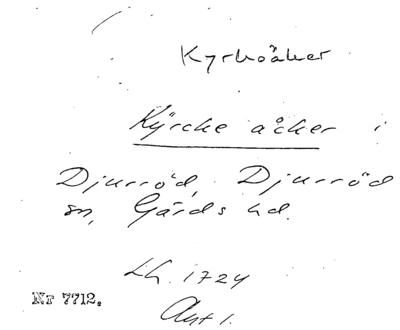 Kyrkoåker
Kÿrcke åcker i
Djurröd, Djurröd
sn, Gärds hd.
Lh. 1724
Ant 1.
Nr 7712.